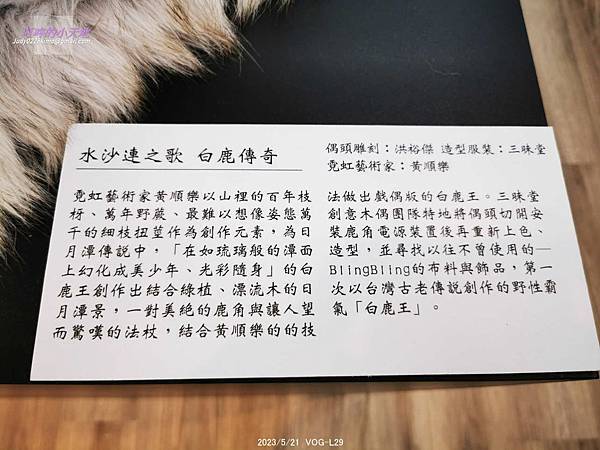 水沙連之歌 白鹿傳奇
偶頭雕刻：洪裕傑 造型服裝：三昧堂
霓虹藝術家：黃順樂
霓虹藝術家黃順樂以山裡的百年枝
枒、萬年野蕨、最難以想像姿態萬
千的細枝扭莖作為創作元素，為日
月潭傳說中，「在如琉璃般的潭面
上幻化成美少年、光彩隨身」的白
鹿王創作出結合綠植、漂流木的日
月潭景，一對美絕的鹿角與讓人望
而驚嘆的法杖，結合黃順樂的的技
法做出戲偶版的白鹿王。三昧堂
創意木偶團隊特地將偶頭切開安
裝鹿角電源裝置後再重新上色、
造型，並尋找以往不曾使用的—
BlingBling的布料與飾品，第一
次以台灣古老傳說創作的野性霸
氣「白鹿王」。
2023/5/21 VOG-L29